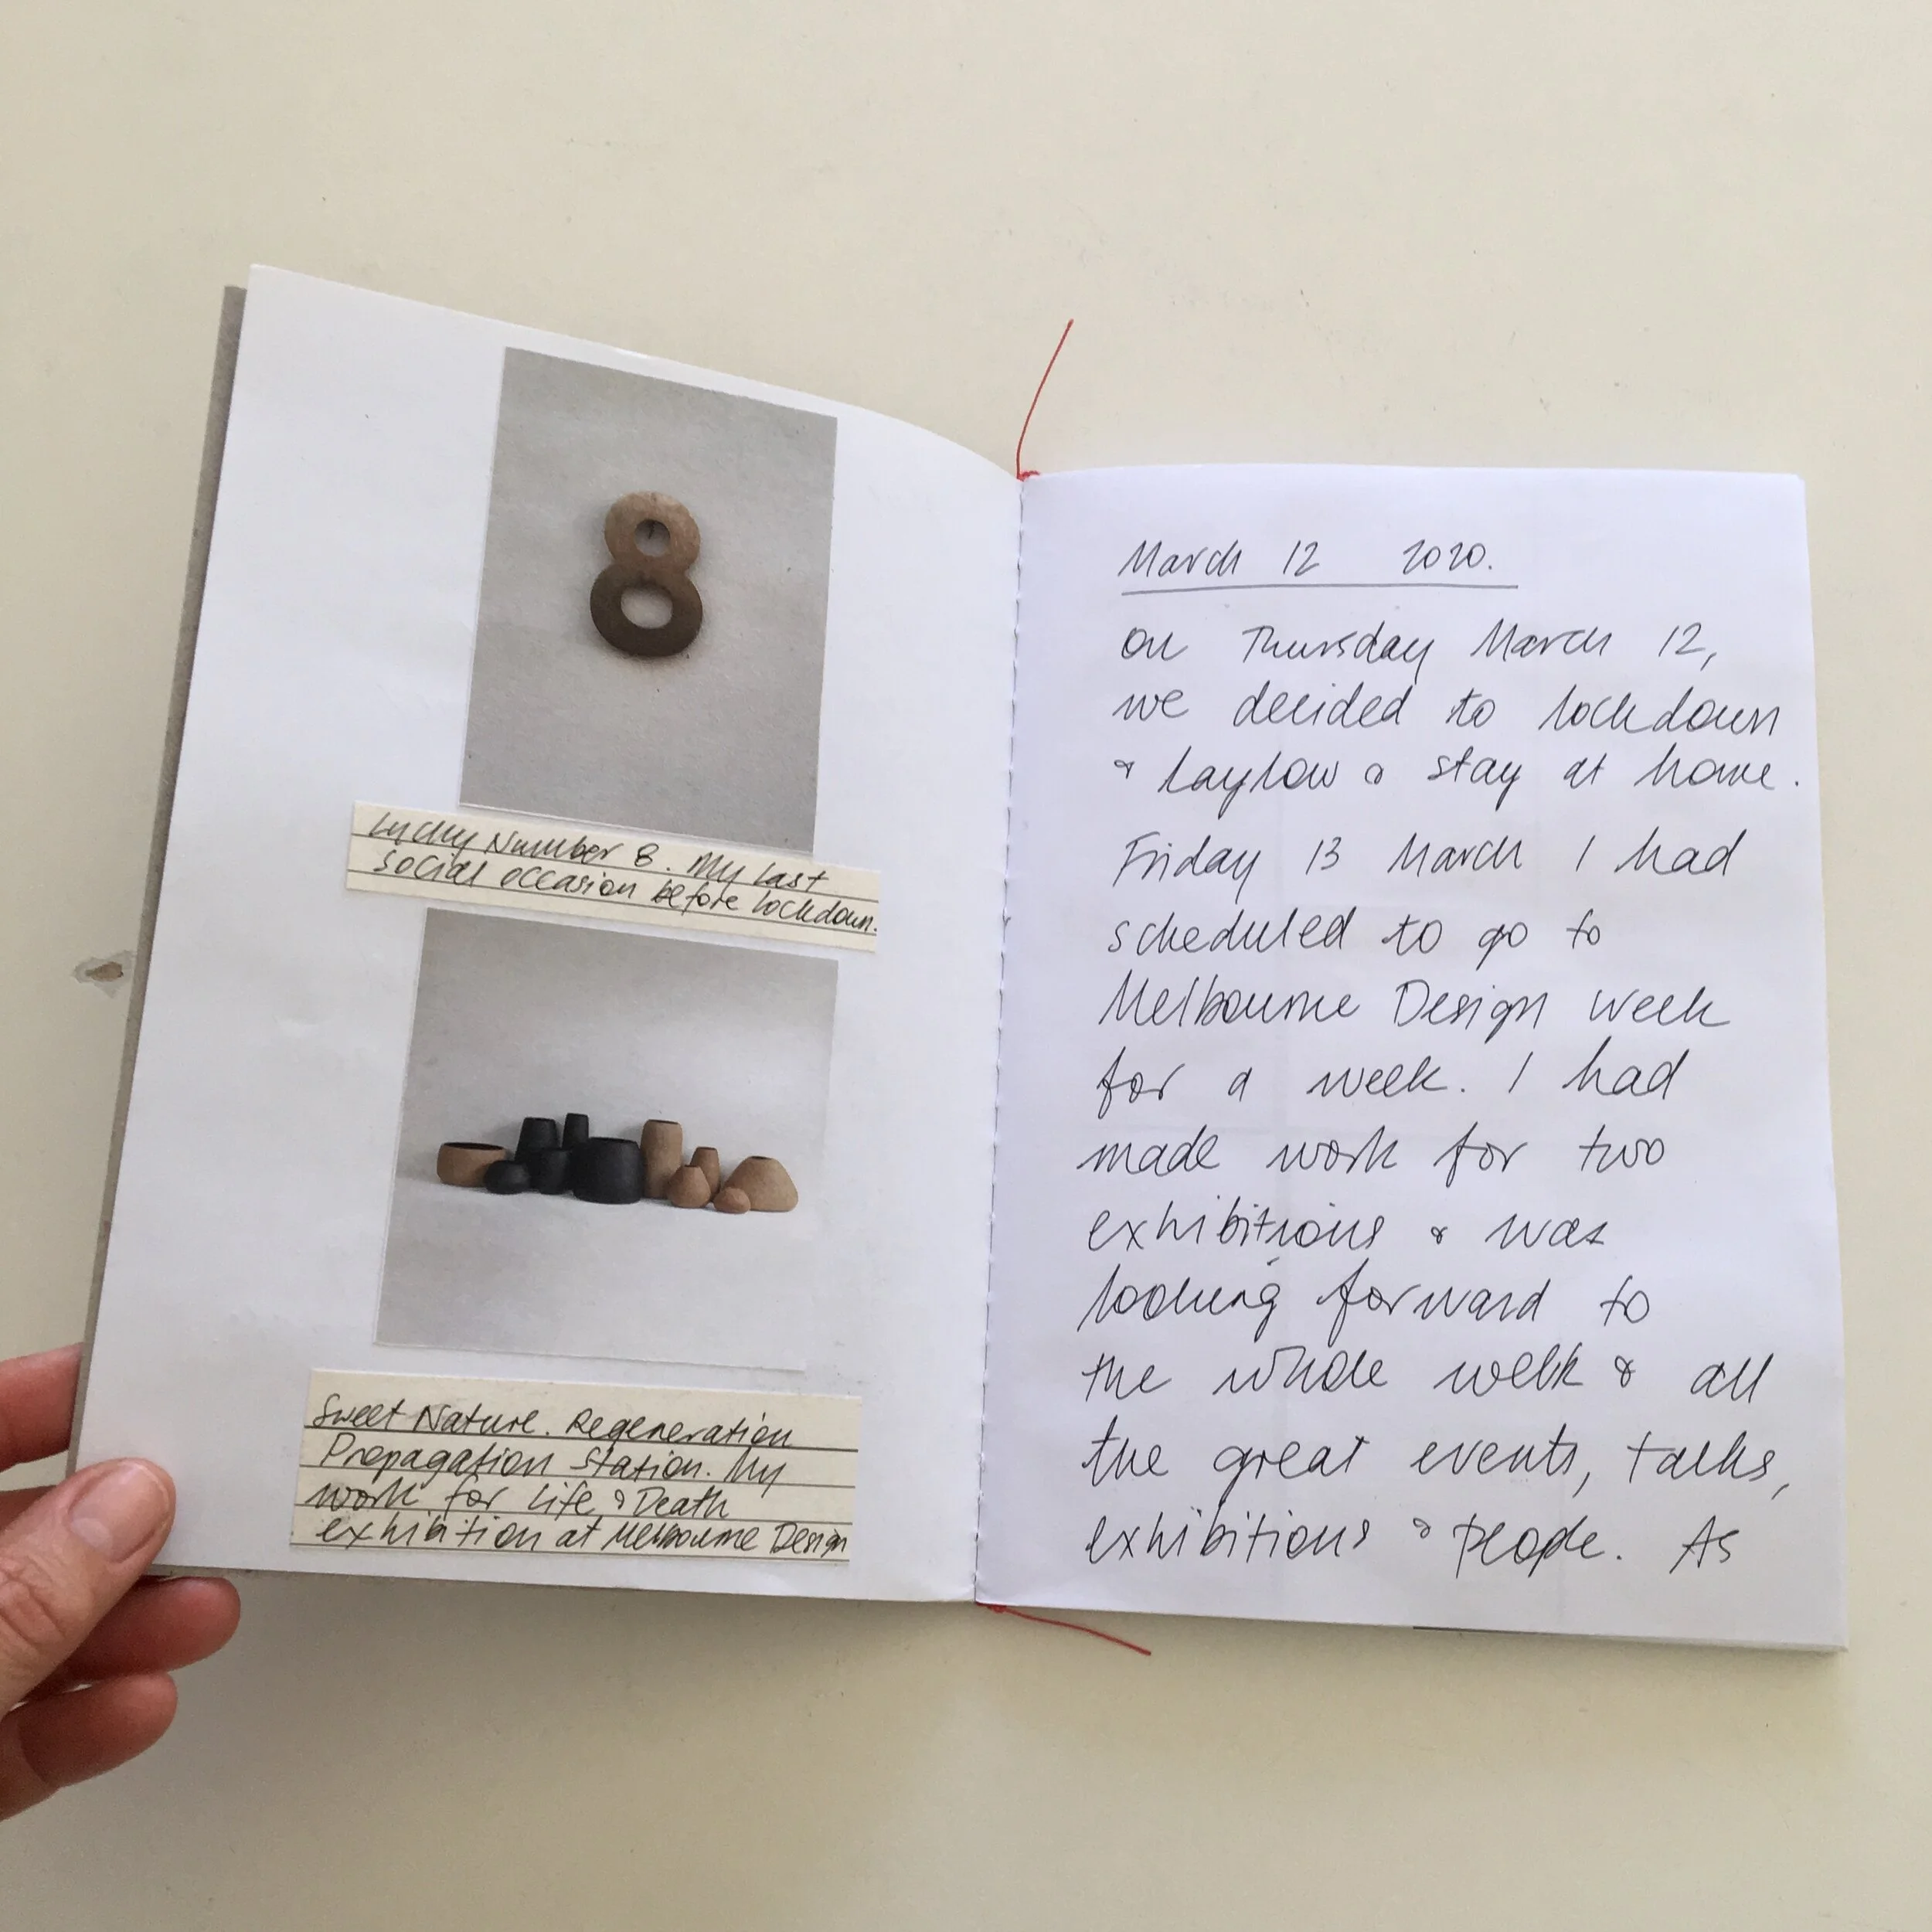 8
Lucky Number 8. My last
social occasion before lockdown.
Sweet Nature. Regeneration
Propagation Station. My
work for Life & Death
exhibition at Melbourne Design
March 12 2020.
On Thursday March 12,
we decided to lockdown
& laylow & stay at home.
Friday 13 March I had
scheduled to go to
Melbourne Design Week
for a week. I had
made work for two
exhibitions & was
looking forward to
the whole week & all
the great events, talks,
exhibitions & people. As